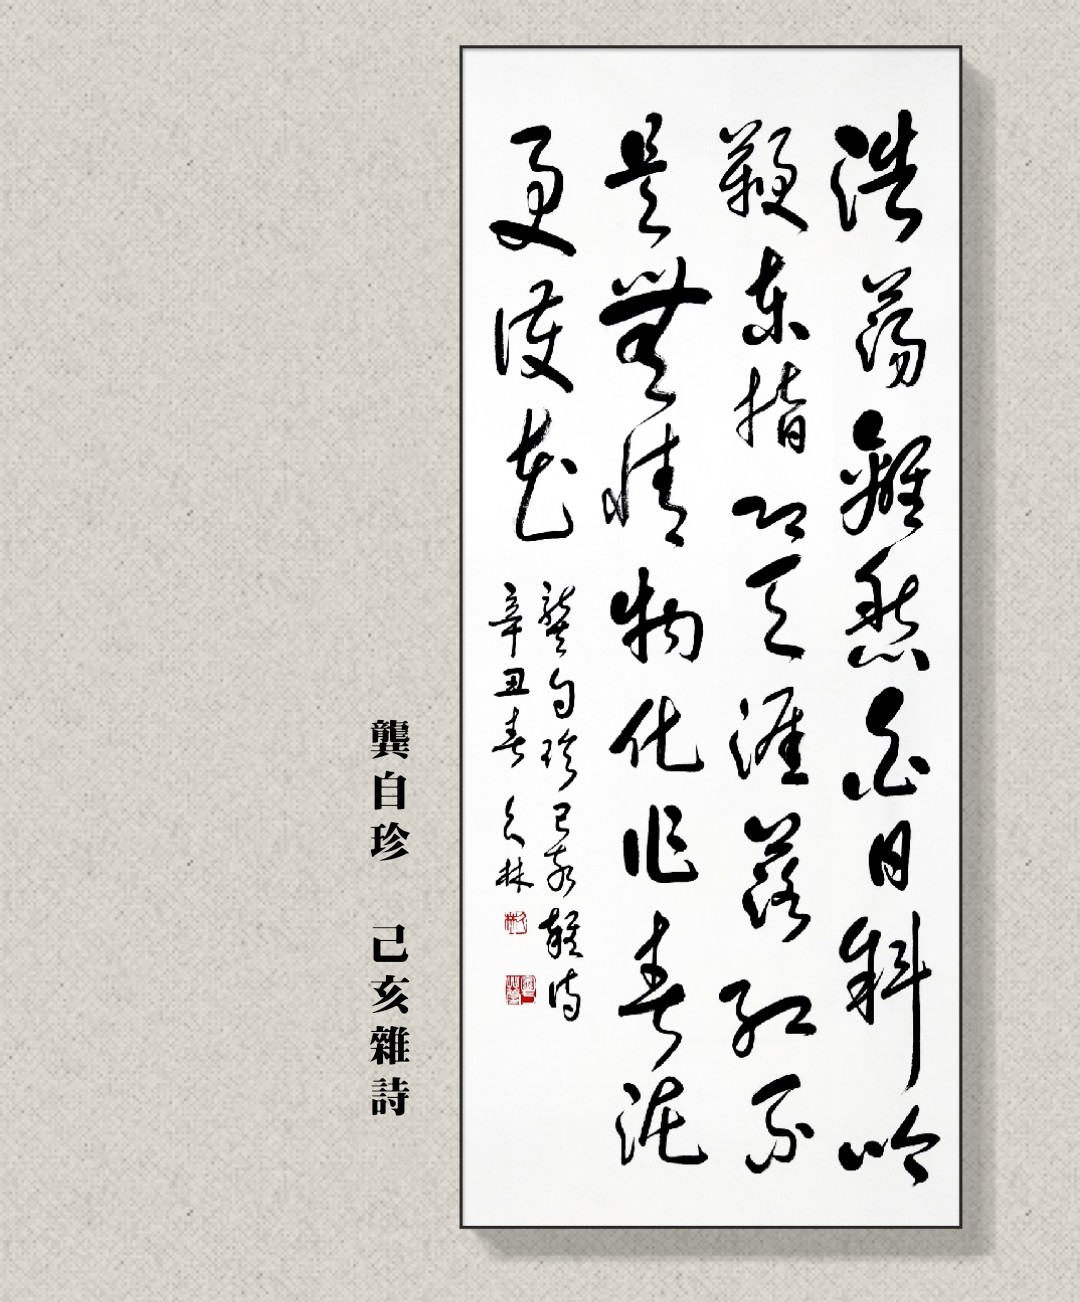 浩蕩離愁白日斜吟
鞭東指即天涯落紅不
是無情物化作春泥
更護花
龔自珍己亥雜詩
辛丑春
龔自珍 己亥雜詩